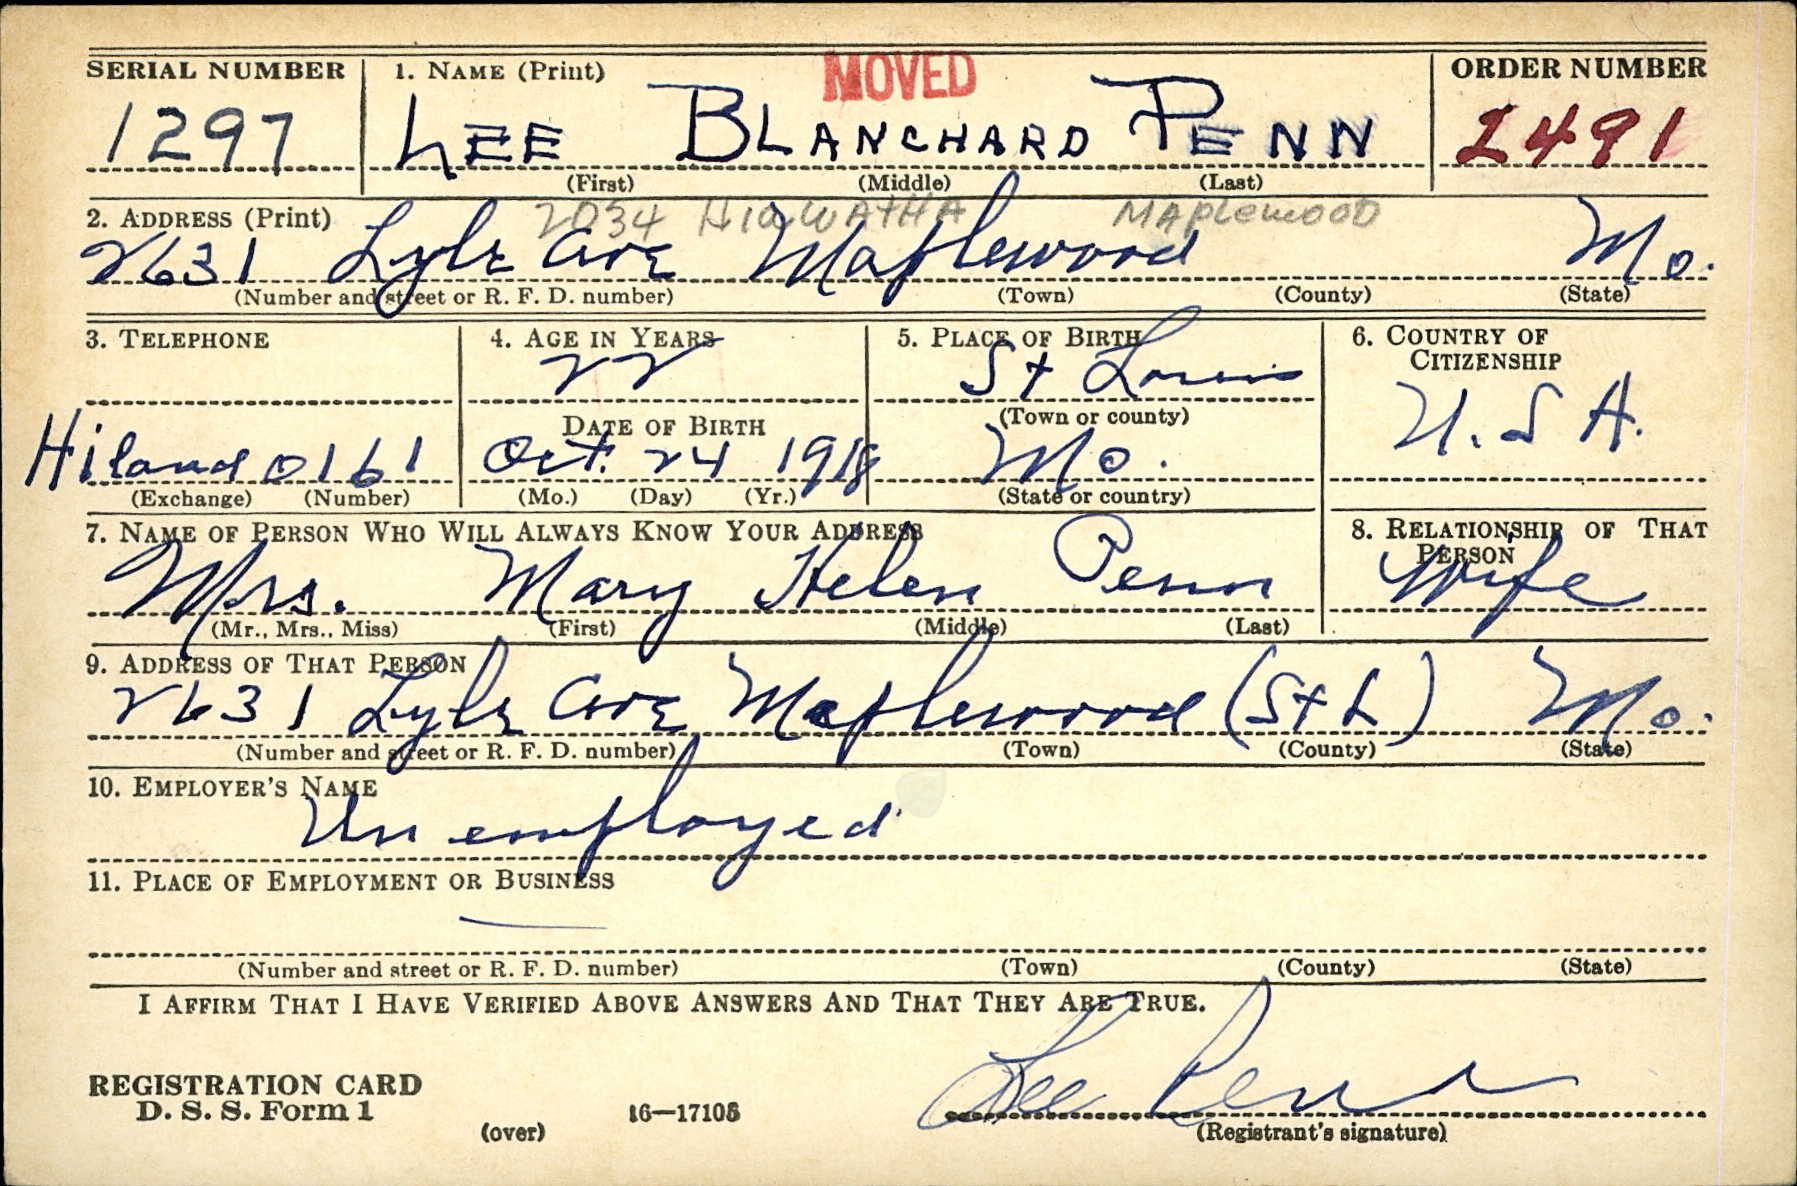 SERIAL NUMBER 1. NAME (Print) MOVED ORDER NUMBER
1297 LEE BLANCHARD PENN 2491
(First) (Middle) (Last)
2. ADDRESS (Print) 2034 HIAWATHA MAPLEWOOD
2631 Lyle Ave Maplewood Mo.
(Number and street or R. F. D. number) (Town) (County) (State)
3. TELEPHONE 4. AGE IN YEARS 5. PLACE OF BIRTH 6. COUNTRY OF CITIZENSHIP
22 St Louis U.S A.
DATE OF BIRTH (Town or county)
Hiland 0161 Oct. 24 1918 Mo.
(Exchange) (Number) (Mo.) (Day) (Yr.) (State or country)
7. NAME OF PERSON WHO WILL ALWAYS KNOW YOUR ADDRESS 8. RELATIONSHIP OF THAT PERSON
Mrs. Mary Helen Penn Wife
(Mr., Mrs., Miss) (First) (Middle) (Last)
9. ADDRESS OF THAT PERSON
2631 Lyle Ave Maplewood (St L) Mo.
(Number and street or R. F. D. number) (Town) (County) (State)
10. EMPLOYER'S NAME
Unemployed
11. PLACE OF EMPLOYMENT OR BUSINESS
(Number and street or R. F. D. number) (Town) (County) (State)
I AFFIRM THAT I HAVE VERIFIED ABOVE ANSWERS AND THAT THEY ARE TRUE.
REGISTRATION CARD
D. S. S. Form 1 16—17105 Lee Penn
(over) (Registrant's signature)